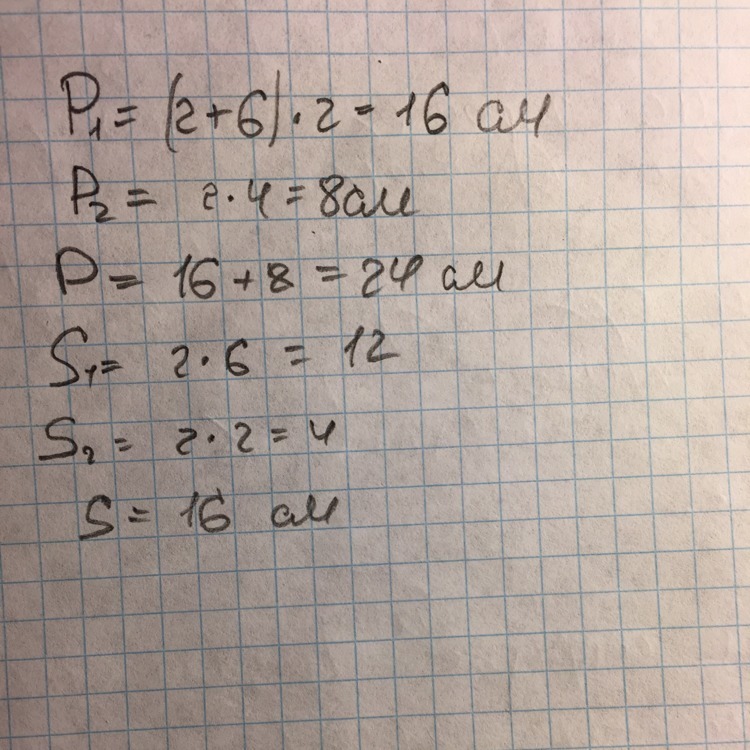 P₁ = (2+6)·2 = 16 см
P₂ = 2·4 = 8 см
P = 16 + 8 = 24 см
S₁ = 2·6 = 12
S₂ = 2·2 = 4
S = 16 см